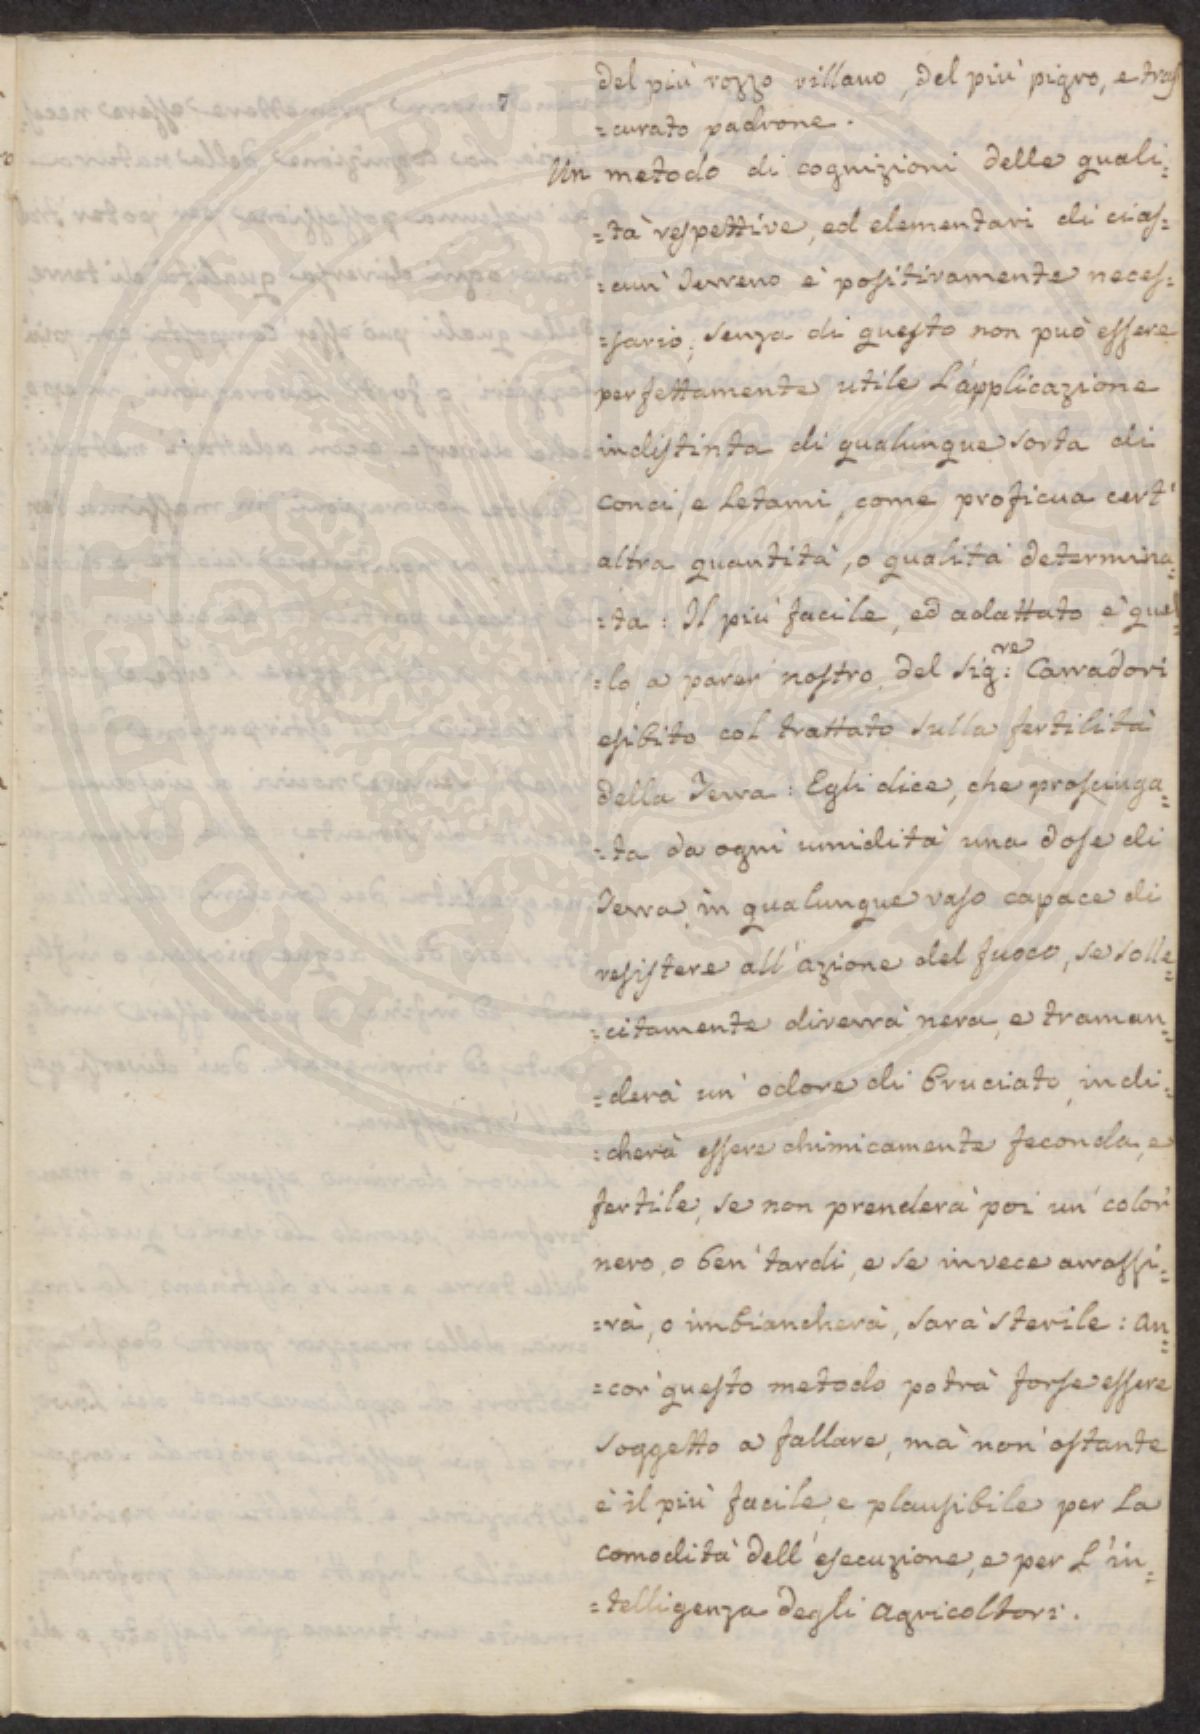 7
del più rozzo villano, del più pigro, e tras
=curato padrone.
Un metodo di cognizioni delle quali=
=tà respettive, ed elementari di cias=
=cun' Terreno e' positivamente neces=
=sario; senza di questo non può essere
perfettamente utile L'applicazione
indistinta di qualunque sorta di
Conci, e Letami, come proficua cert'
altra quantità, o qualità determina=
=ta: Il più facile, ed adattato e' quel=
=lo, a parer nostro, del Sig:re Carradori
esibito col trattato sulla fertilità
della Terra: Egli dice, che prosciuga=
=ta da ogni umidità una dose di
Terra, in qualunque vaso capace di
resistere all'azione del fuoco, se solle=
=citamente diverrà nera, e traman=
=derà un' odore di bruciato, indi=
=cherà essere chimicamente feconda, e
fertile, se non prenderà poi un' color'
nero, o ben' tardi, e se invece arrossi=
=rà, o imbiancherà, sarà sterile: an=
=cor' questo metodo potrà forse essere
soggetto a fallare, mà non' ostante
è il più facile, e plausibile per La
comodità dell'esecuzione, e per L'in=
=telligenza degli Agricoltori.